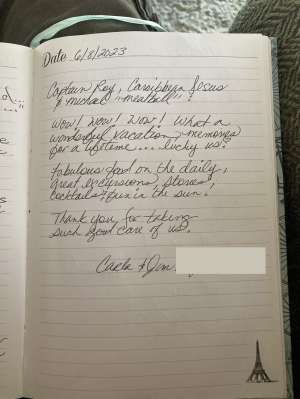 Date 6/8/2023
Captain Roy, Caribbean Jesus
& Michael "meatball"!
Wow! Wow! Wow! What a
wonderful vacation & memories
for a lifetime... lucky us!
Fabulous food on the daily,
great excursions, stories,
cocktails & fun in the sun!
Thank you for taking
such good care of us!
Carla & Jim